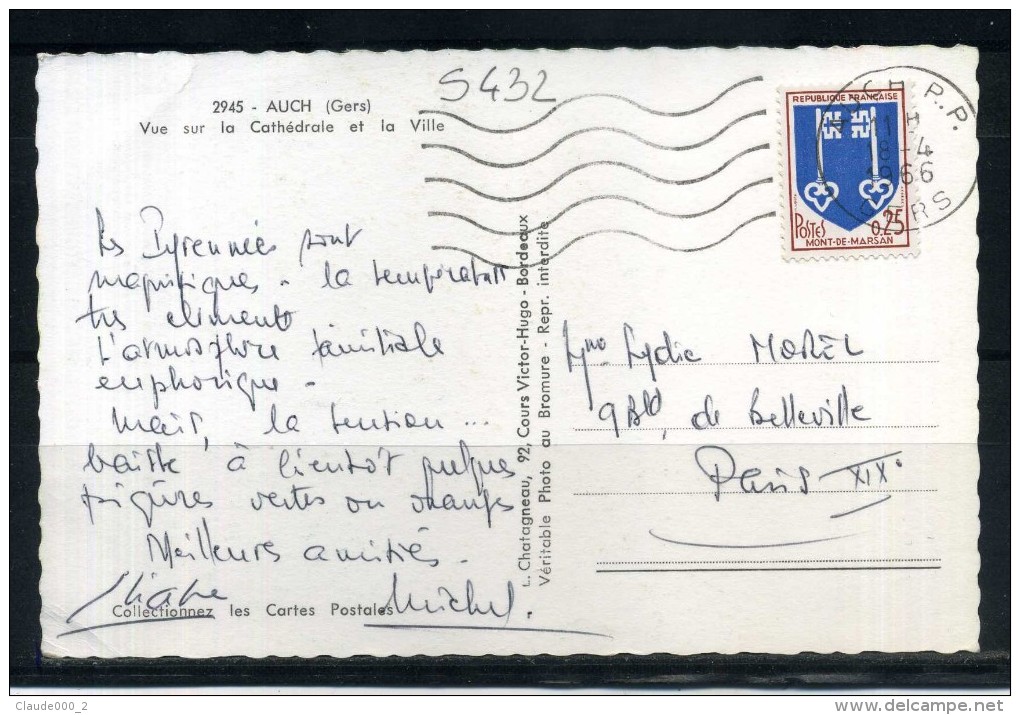 S432
2945 - AUCH (Gers)
Vue sur la Cathédrale et la Ville
REPUBLIQUE FRANÇAISE
POSTES
0,25F
MONT-DE-MARSAN
AUCH R.P.
11 H
18-4
1966
GERS
Les Pyrennées sont
magnifiques. la température
très
l'atmosphère familiale
euphorique.
Mais, la tension...
baisse à bientôt quelques
vertes ou oranges
Meilleures amitiés.
Michel.
L. Chatagneau, 92, Cours Victor-Hugo - Bordeaux
Véritable Photo au Bromure - Repr. interdite
Lydie MOREL
9 Bld, de Belleville
Paris XIXe
Collectionnez les Cartes Postales
Claude000_2
delcampe.net